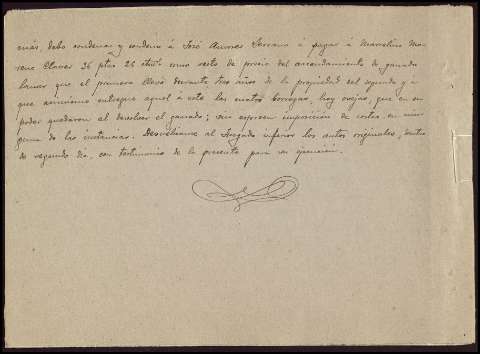 más, debo condenar y condeno á José Aunes Serrano á pagar á Marcelino Mo-
reno Claver 36 ptas 26 ctmos como resto de precio del arrendamiento de ganado
lanar que el primero llevó durante tres años de la propiedad del segundo y á
que asimismo entregue aquel á este las cuatro borregas, hoy ovejas, que en su
poder quedaron al devolver el ganado; sin expresa imposición de costas en nin-
guna de las instancias. Devuélvanse al Juzgado inferior los autos originales, dentro
de segundo día, con testimonio de la presente para su ejecución.